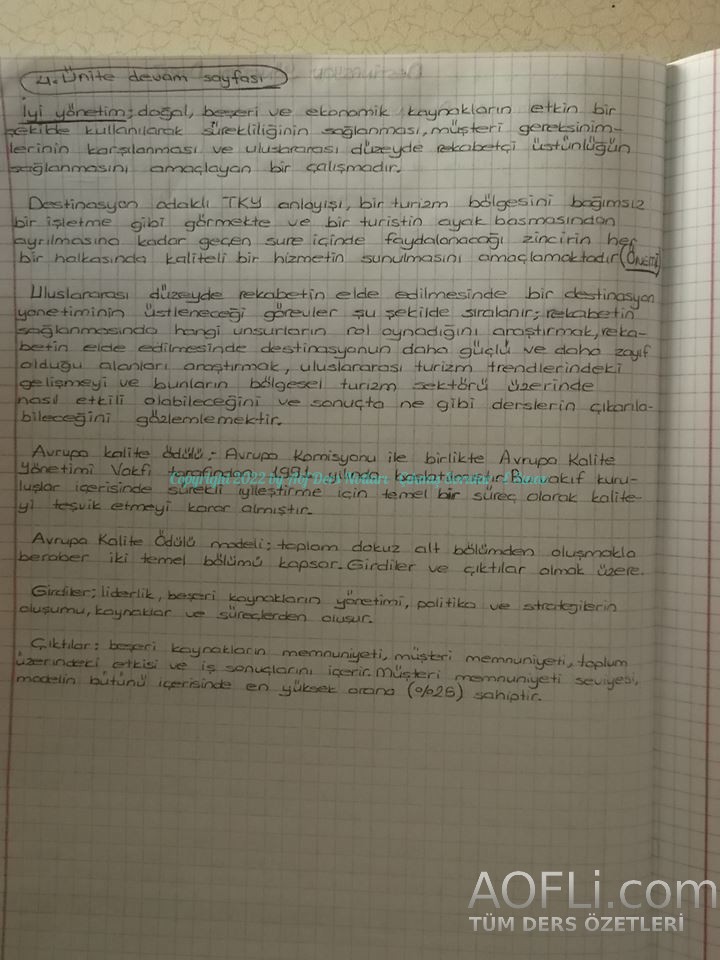 4. Ünite devam sayfası
İyi yönetim; doğal, beşeri ve ekonomik kaynakların etkin bir
şekilde kullanılarak sürekliliğinin sağlanması, müşteri gereksinim-
lerinin karşılanması ve uluslararası düzeyde rekabetçi üstünlüğün
sağlanmasını amaçlayan bir çalışmadır.
Destinasyon odaklı TKY anlayışı, bir turizm bölgesini bağımsız
bir işletme gibi görmekte ve bir turistin ayak basmasından
ayrılmasına kadar geçen sure içinde faydalanacağı zincirin her
bir halkasında kaliteli bir hizmetin sunulmasını amaçlamaktadır (ÖNEMLİ)
Uluslararası düzeyde rekabetin elde edilmesinde bir destinasyon
yönetiminin üstleneceği görevler şu şekilde sıralanır; rekabetin
sağlanmasında hangi unsurların rol oynadığını araştırmak, reka-
betin elde edilmesinde destinasyonun daha güçlü ve daha zayıf
olduğu alanları araştırmak, uluslararası turizm trendlerindeki
gelişmeyi ve bunların bölgesel turizm sektörü üzerinde
nasıl etkili olabileceğini ve sonuçta ne gibi derslerin çıkarıla-
bileceğini gözlemlemektir.
Avrupa kalite ödülü; Avrupa Komisyonu ile birlikte Avrupa Kalite
Yönetimi Vakfı tarafından 1991 yılında başlatılmıştır. Bu vakıf kuru-
Copyright 2022 by Aöf Ders Notları
luşlar içerisinde sürekli iyileştirme için temel bir süreç olarak kalite-
yi teşvik etmeyi karar almıştır.
Avrupa Kalite Ödülü modeli; toplam dokuz alt bölümden oluşmakla
beraber iki temel bölümü kapsar. Girdiler ve çıktılar olmak üzere.
Girdiler; liderlik, beşeri kaynakların yönetimi, politika ve stratejilerin
oluşumu, kaynaklar ve süreçlerden oluşur.
Çıktılar; beşeri kaynakların memnuniyeti, müşteri memnuniyeti, toplum
üzerindeki etkisi ve iş sonuçlarını içerir. Müşteri memnuniyeti seviyesi,
modelin bütünü içerisinde en yüksek orana (%25) sahiptir.
AOFLi.com
TÜM DERS ÖZETLERİ